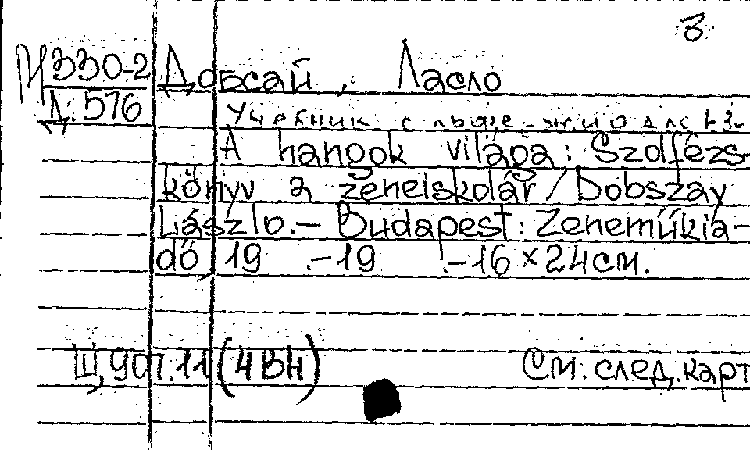 3
И330-2 Добсай, Ласло
Д.576
Учебник
A hangok világa: Szolfézs-
könyv a zeneiskolár/Dobszay
László.— Budapest: Zeneműkia-
dó, 19 .-19 .-16×24см.
Щ,907.11(4ВН) См. след. карт